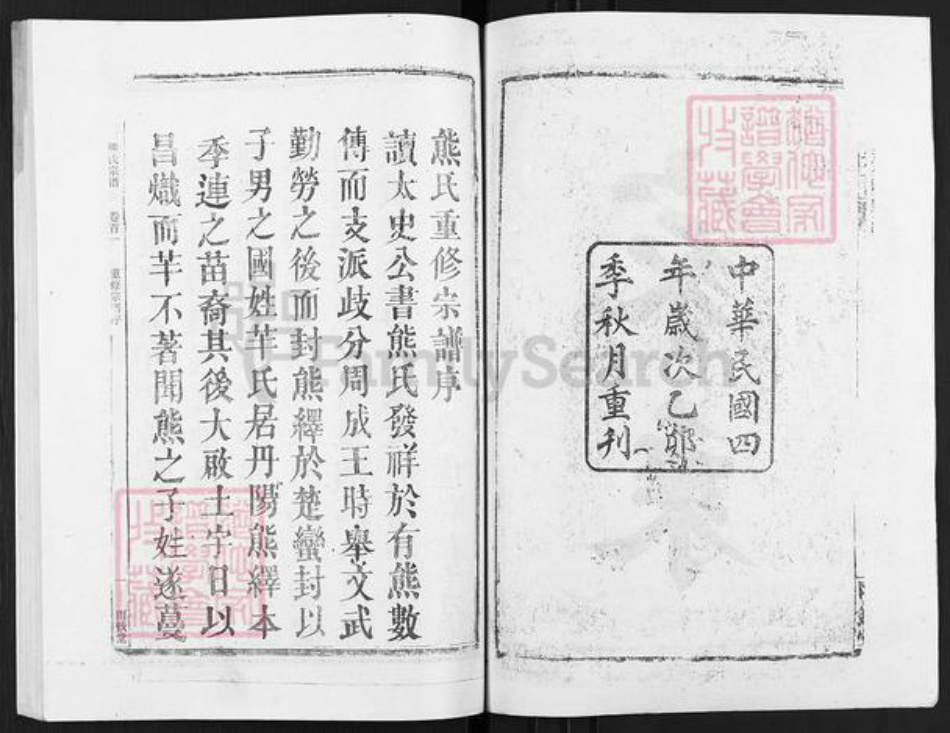 中華民國四
年歲次乙卯
季秋月重刊
熊氏重修宗譜序
讀太史公書熊氏發祥於有熊數
傳而支派歧分周成王時舉文武
勤勞之後而封熊繹於楚蠻封以
子男之國姓芈氏居丹陽熊繹本
季連之苗裔其後大啟土宇日以
昌熾而芈不著聞熊之子姓遂蔓
熊氏宗譜 卷首一 重修宗譜序
FamilySearch